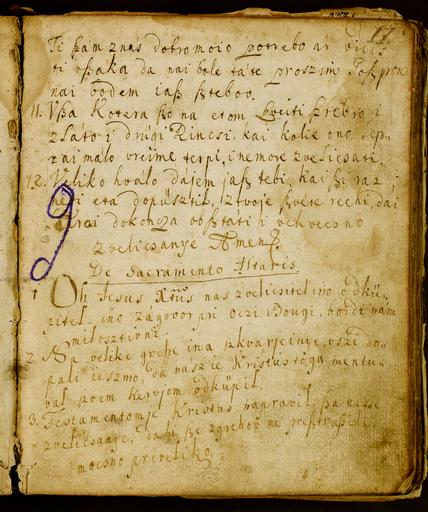 17
Ti szam znas dobro moio potrebo ar vidis
ti vszaka da nai bole tate proszim Gosz pon
nai bodem iasz sz tebov
11. Vsza kotera szo na etom szveiti szrebro i
zlato i drügi kincsi, kai kolie ono,
zai malo vreime terpi, i nemore zvelicsati.
12. Veliko hvalo dajem jasz tebi, kai szi raz
meti eta dopüsztil, iz tvoje szvete recsi, dai
mi do koncza obsztati i vekvecsno
zvelicsanye Amen
De Sacramento Altaris
1 Oh Jesus Xtus nas zvelicsitel ino odkü-
pitel, ino zagovor pri Oczi Bougi, boidi nam
milosztivni
2. Na velike grehe ina szkvarjeinye vszi do-
pali
val szvoim kervjom odküpil.
3. Testamentom je Kristus napravil, za nasse
zvelicsanye, da bi sze z grehov ne presztrasili
mocsno